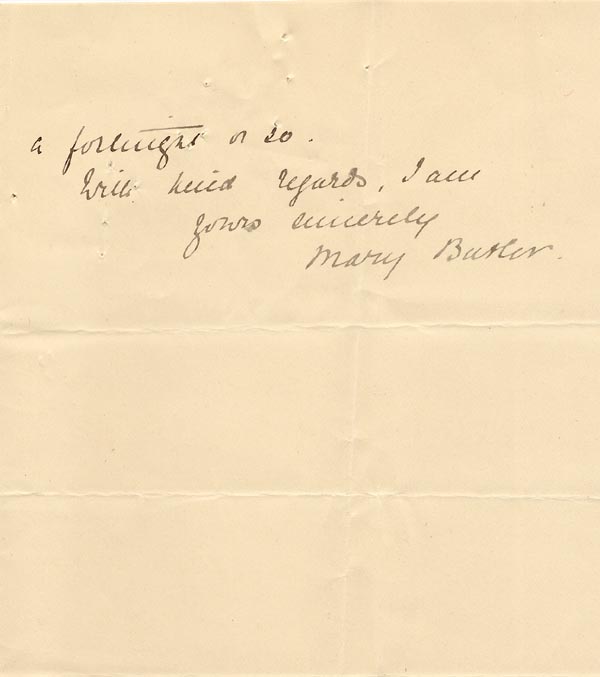 a fortnight or so.
With kind regards, I am
yours sincerely
Mary Butler.